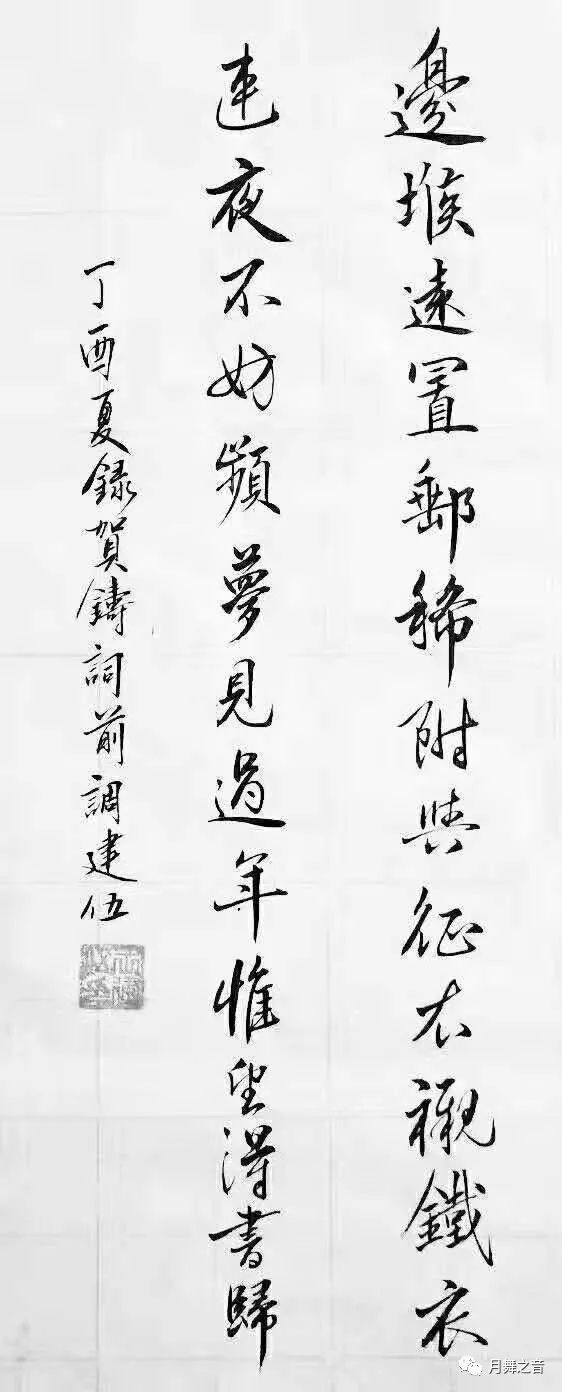 邊堠遠置郵稀附與征衣襯鐵衣
連夜不妨頻夢見過年惟望得書歸
丁酉夏録賀鑄詞前調建伍
月舞之音